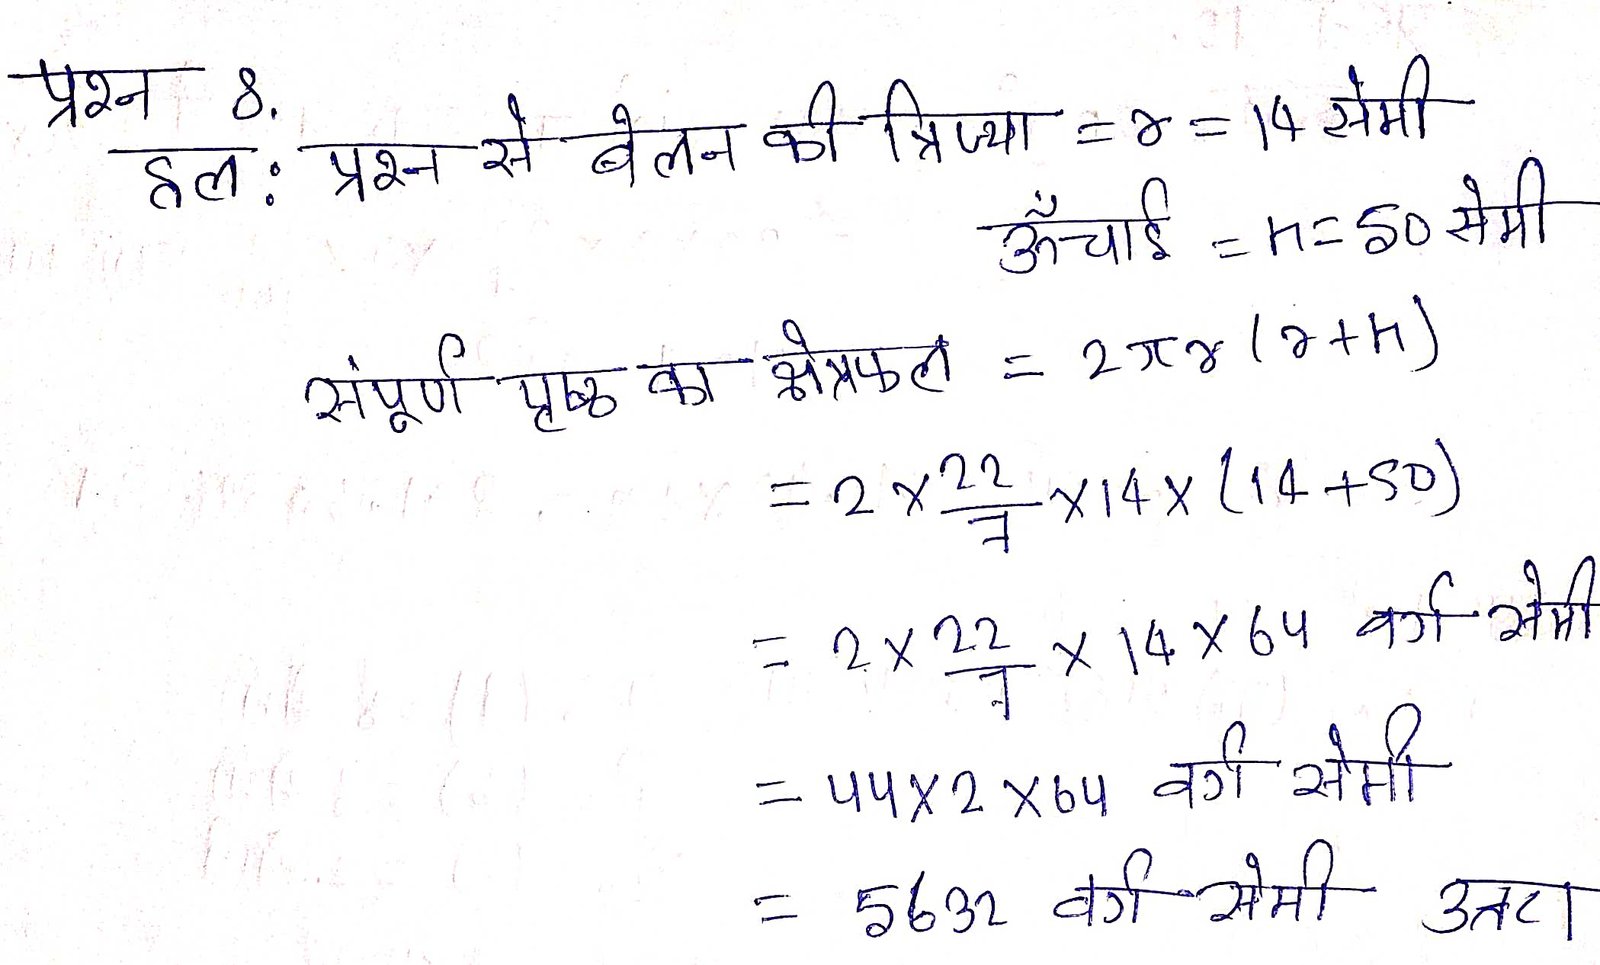 प्रश्न 8.
हल: प्रश्न से बेलन की त्रिज्या = r = 14 सेमी
ऊँचाई = h = 50 सेमी
संपूर्ण पृष्ठ का क्षेत्रफल = 2πr (r+h)
= 2 × 22/7 × 14 × (14 + 50)
= 2 × 22/7 × 14 × 64 वर्ग सेमी
= 44 × 2 × 64 वर्ग सेमी
= 5632 वर्ग सेमी उत्तर।